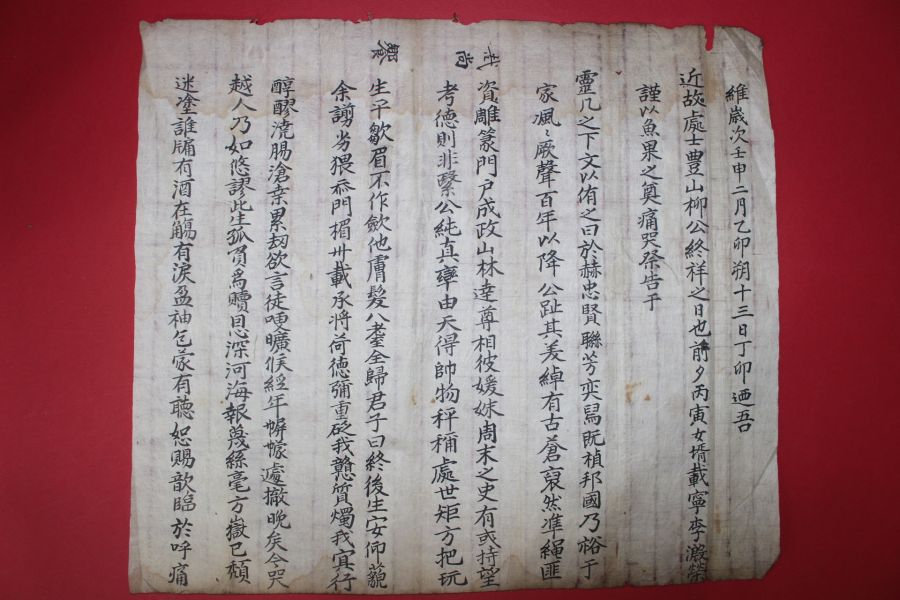 維歲次壬申二月乙卯朔十三日丁卯迺吾
近故處士豊山柳公終祥之日也前夕丙寅女壻載寧李瀫榮
謹以魚果之奠痛哭祭告于
靈几之下文以侑之曰於赫忠賢聯芳奕舃既楨邦國乃裕于
家風〻厥聲百年以降公趾其美綽有古蒼裒然準繩匪
資雕篆門戶成政山林達尊相彼媛姝周末之史有或持望
考德則非繄公純真率由天得帥物秤稱處世矩方把玩
生平皺眉不作歛他膚髮八耋全歸君子曰終後生安仰藐
余謭劣猥忝門楣卅載承將荷德彌重砭我戇質燭我冥行
醇醪澆腸滄桒累刼欲言徒哽曠候經年幈幪遽撤晚矣今哭
越人乃如悠謬此生孤負爲贖恩深河海報蔑絲毫方嶽已頹
迷塗誰牖有酒在觴有淚盈袖包蒙有聽恕賜歆臨於呼痛
哉尚
饗